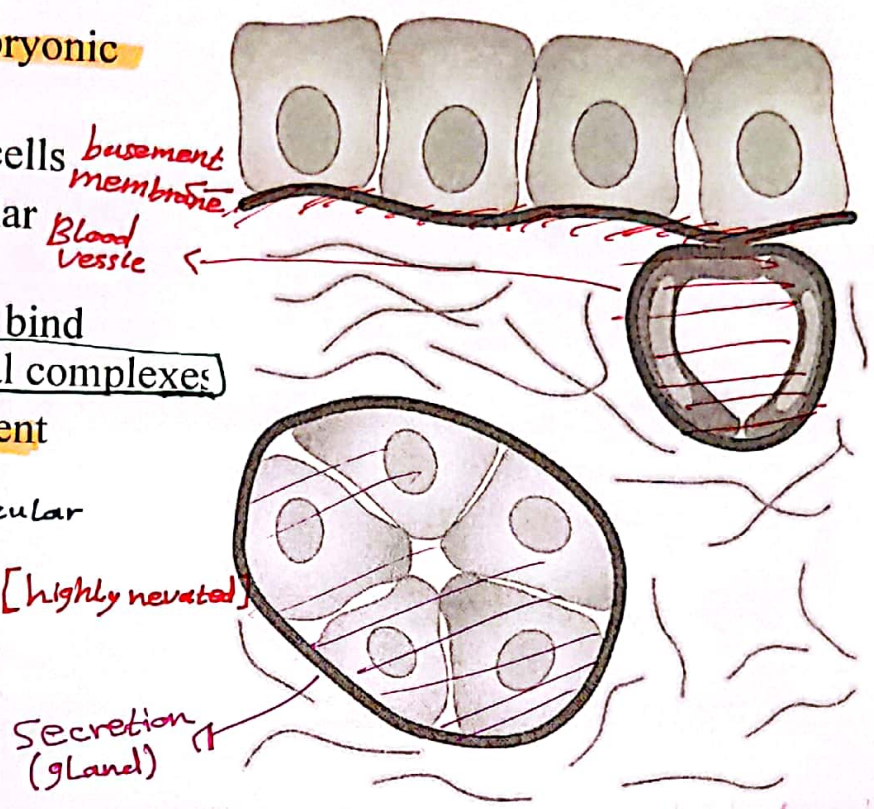 ryonic
cells
basement
membrane
ar
Blood
vessle
bind
l complexes
ent
cular
[highly nevated]
Secretion
(gland)